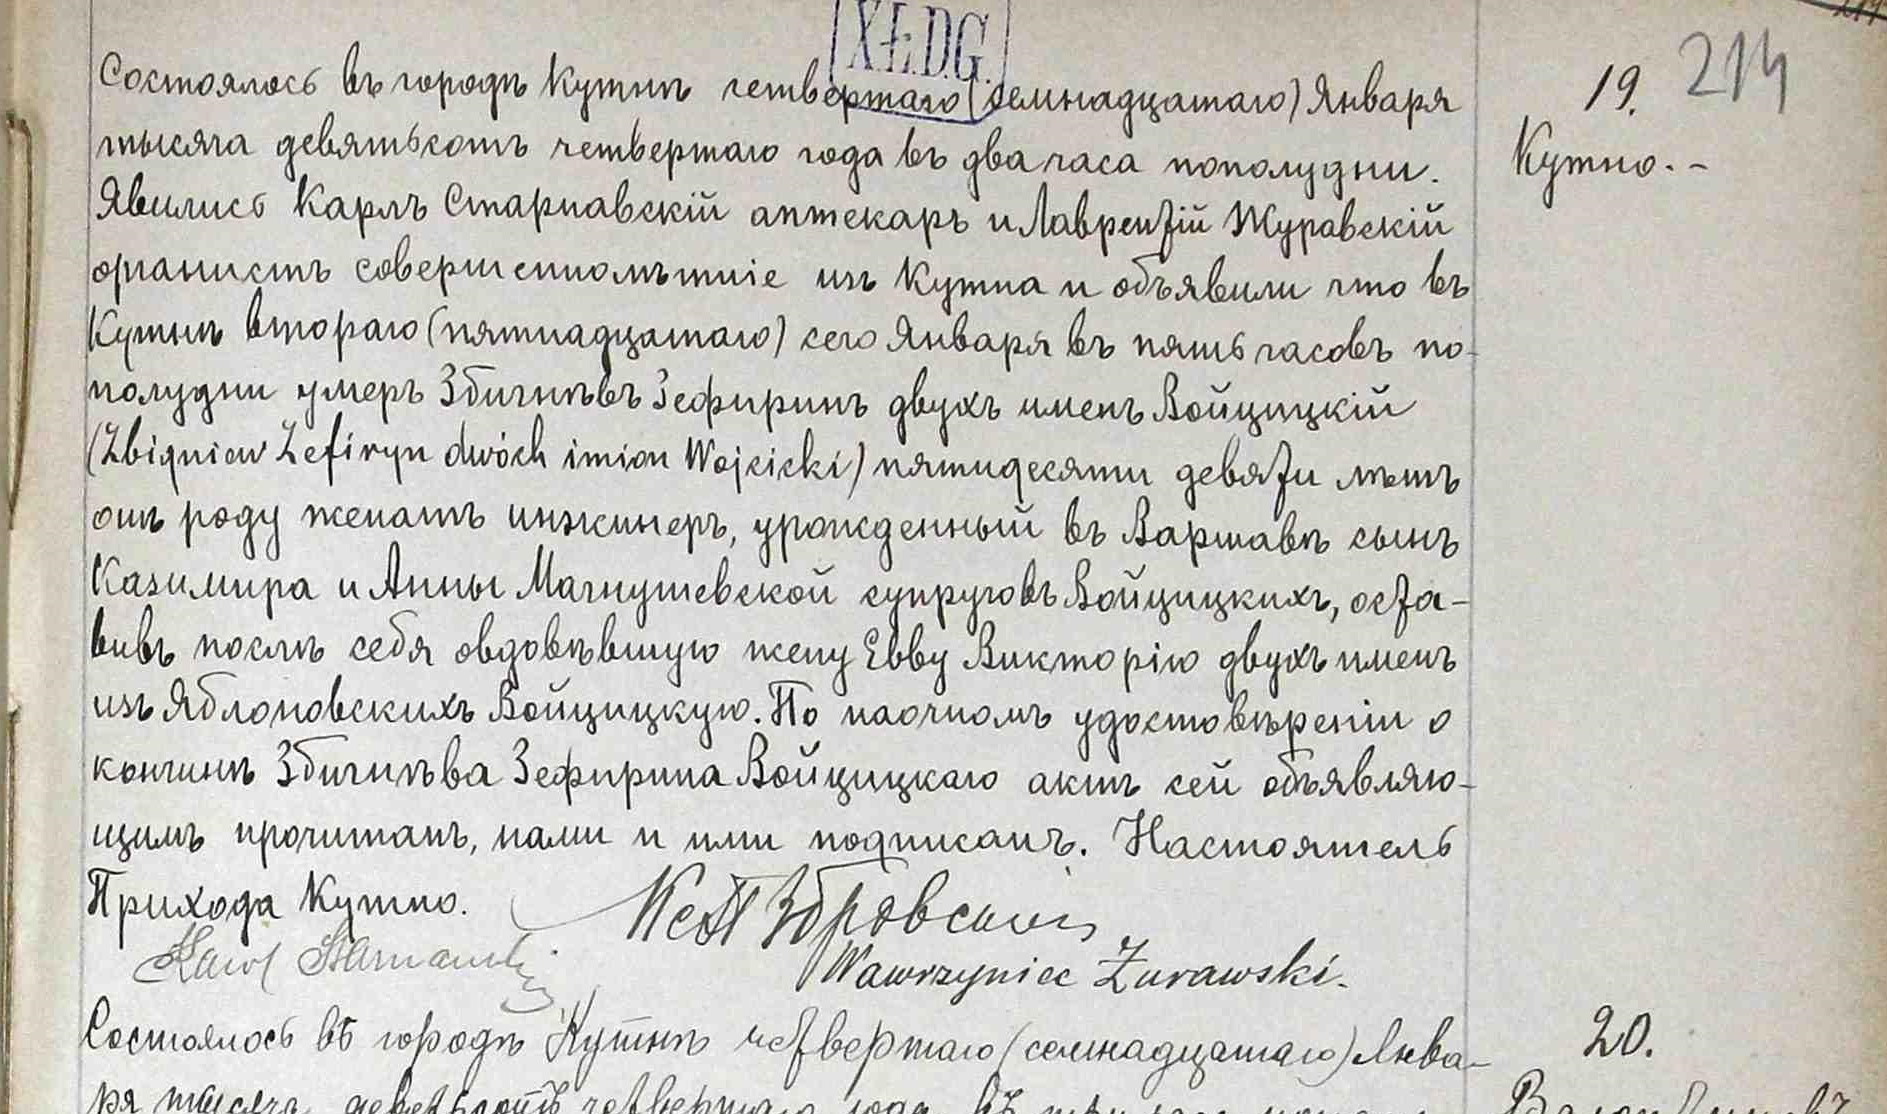 X.Ł.D.G.
214
Состоялось въ городѣ Кутнѣ четвертаго (семнадцатаго) Января
19.
тысяча девятьсотъ четвертаго года въ два часа пополудни.
Кутно. -
Явились Карлъ Старнавскій аптекарь и Лаврентій Журавскій
органистъ совершеннолѣтніе изъ Кутна и объявили что въ
Кутнѣ втораго (пятнадцатаго) сего Января въ пять часовъ по-
полудни умеръ Збигнѣвъ Зефиринъ двухъ именъ Войцицкій
(Zbigniew Zefiryn dwóch imion Wojcicki) пятидесяти девяти лѣтъ
отъ роду женатъ инжинеръ, урожденный въ Варшавѣ сынъ
Казимира и Анны Магнушевской супруговъ Войцицкихъ, оста-
вивъ послѣ себя овдовѣвшую жену Евву Викторію двухъ именъ
изъ Яблоновскихъ Войцицкую. По наочномъ удостовѣреніи о
кончинѣ Збигнѣва Зефирина Войцицкаго актъ сей объявляю-
щимъ прочитанъ, нами и ими подписанъ. Настоятель
Прихода Кутно.
Karol
Wawrzyniec Żurawski.
Состоялось въ городѣ Кутнѣ четвертаго (семнадцатаго) Янва-
20.
ря тысяча девятьсотъ четвертаго года въ